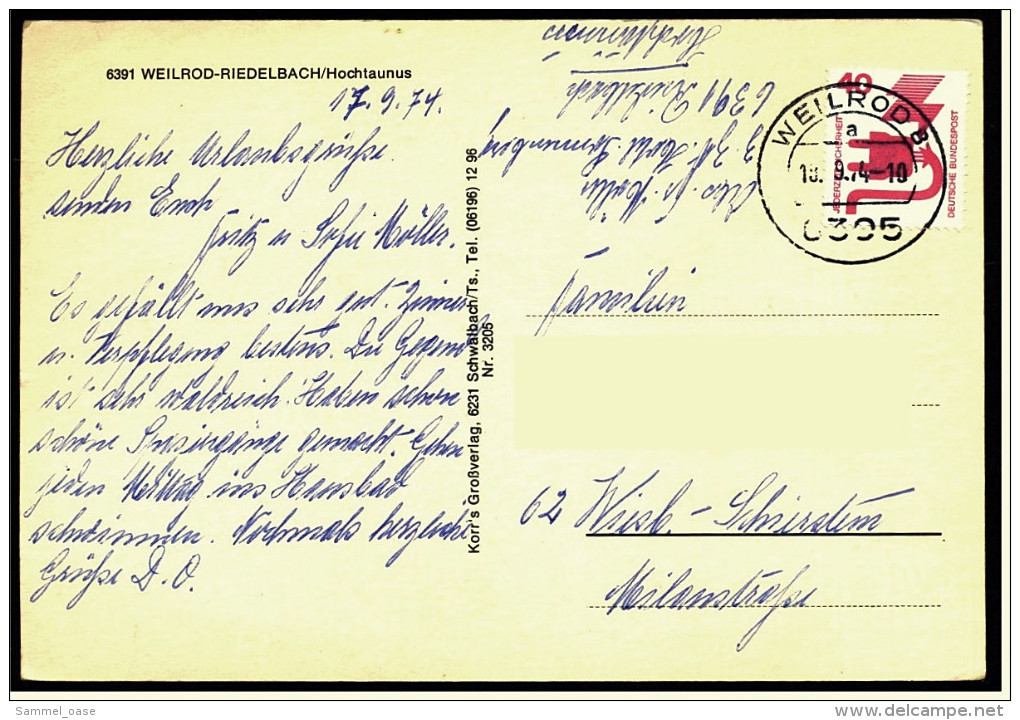 6391 WEILROD-RIEDELBACH/Hochtaunus
17.9.74.
Herzliche Urlaubsgrüße
senden Euch
Fritz u Sofie Möller.
Es gefällt uns sehr gut. Zimmer
u. Verpflegung bestens. Die Gegend
ist sehr waldreich. Haben schon
schöne Spaziergänge gemacht. Gehen
jeden Mittag ins Hausbad
schwimmen. Nochmals herzliche
Grüße D. O.
Korr's Großverlag, 6231 Schwalbach/Ts., Tel. (06196) 12 96
Nr. 3205
Abs. Fr. Möller
z. Zt. Hotel Sonnenberg
6391 Riedelbach
40
JEDERZEIT SICHERHEIT
DEUTSCHE BUNDESPOST
WEILROD
a
18.9.74-10
6395
Familien
62 Wiesb.-Schierstein
Milanstraße
Sammel_oase
delcampe.net